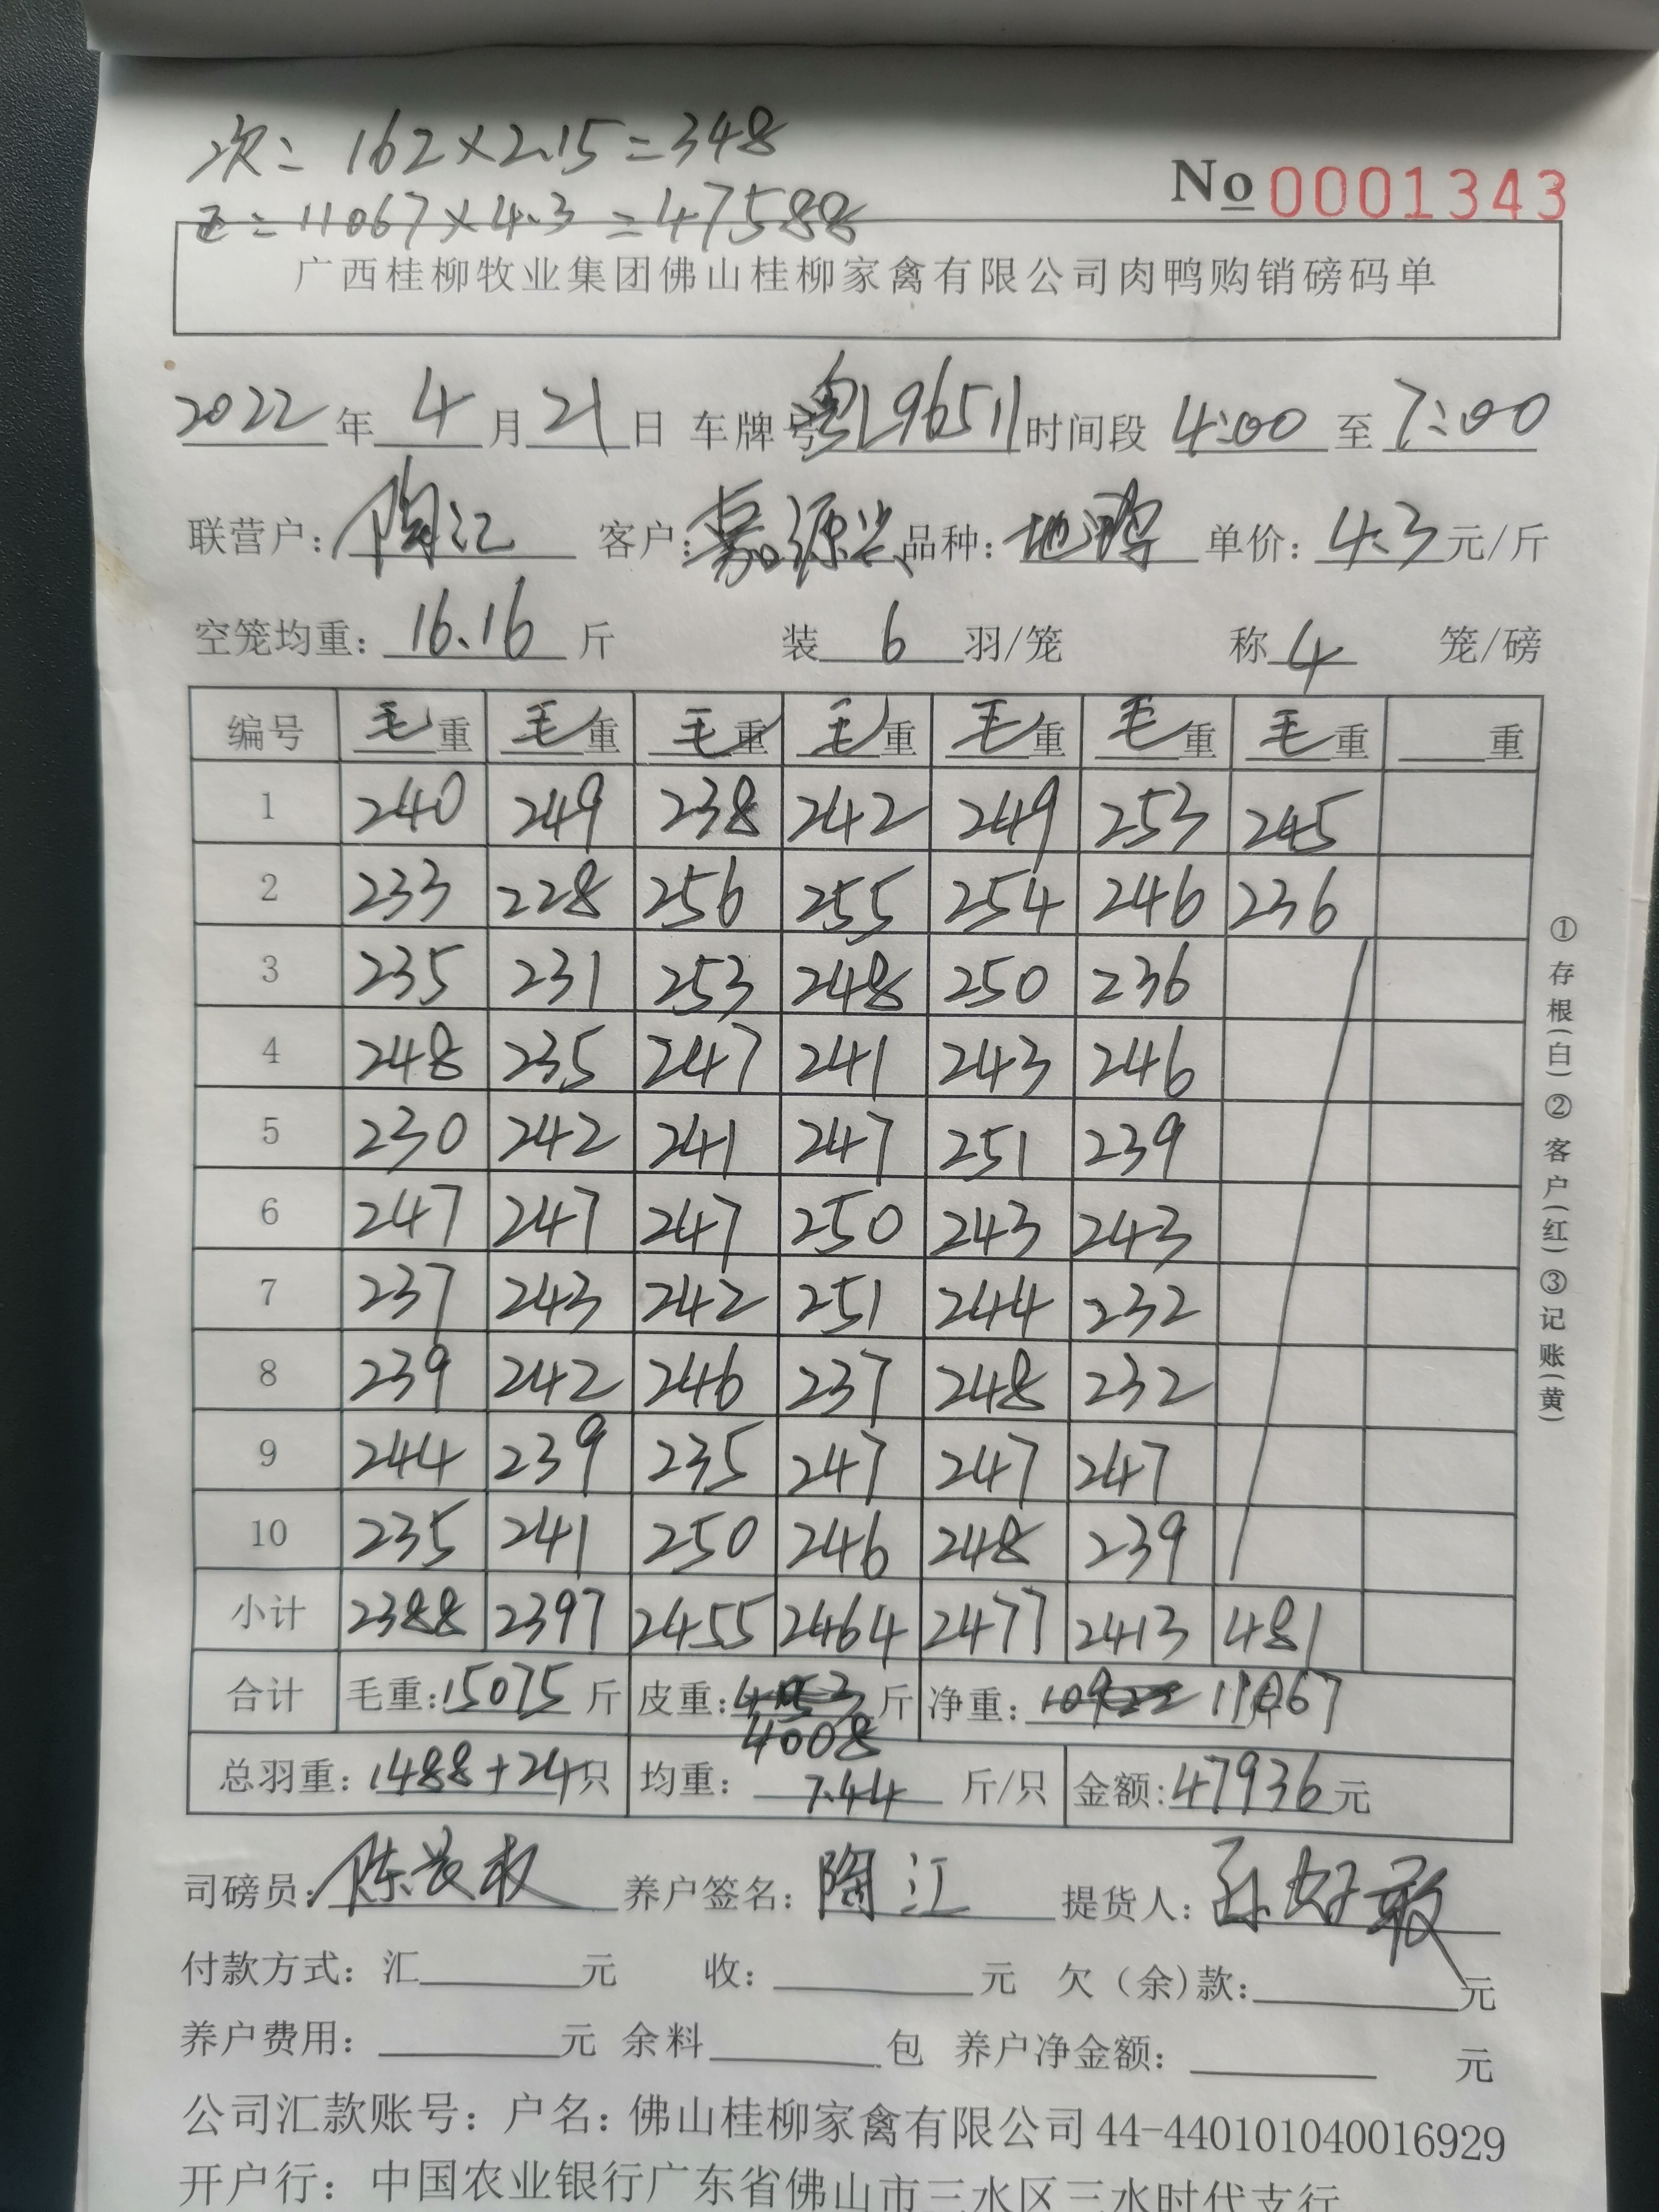 次= 162×2.15=348
正= 11067×4.3 =47588
No 0001343
广西桂柳牧业集团佛山桂柳家禽有限公司肉鸭购销磅码单
2022 年 4 月 21 日 车牌号 粤L96511 时间段 4:00 至 7:00
联营户: 陶江 客户: 嘉源兴 品种: 地鸭 单价: 4.3 元/斤
空笼均重: 16.16 斤 装 6 羽/笼 称 4 笼/磅
编号 毛重 毛重 毛重 毛重 毛重 毛重 毛重 重
1 240 249 238 242 249 253 245
2 233 228 256 255 254 246 236
3 235 231 253 248 250 236
4 248 235 247 241 243 246
5 230 242 241 247 251 239
6 247 247 247 250 243 243
7 237 243 242 251 244 232
8 239 242 246 237 248 232
9 244 239 235 247 247 247
10 235 241 250 246 248 239
小计 2388 2397 2455 2464 2477 2413 481
合计 毛重: 15075 斤 皮重: 4008 斤 净重: 11067
总羽重: 1488+24只 均重: 7.44 斤/只 金额: 47936 元
司磅员: 养户签名: 陶江 提货人: 孙好敢
付款方式: 汇 元 收: 元 欠(余)款: 元
养户费用: 元 余料 包 养户净金额: 元
公司汇款账号: 户名: 佛山桂柳家禽有限公司 44-440101040016929
开户行: 中国农业银行广东省佛山市三水区三水时代支行
①存根(白)②客户(红)③记账(黄)